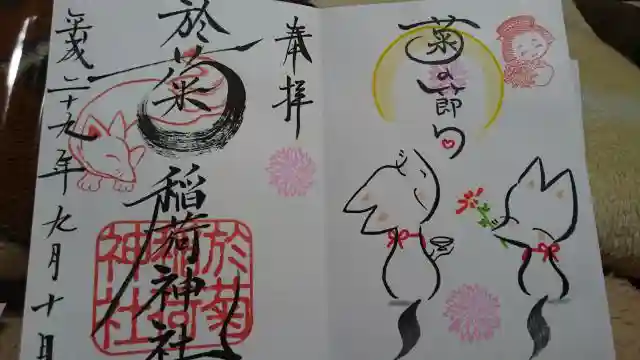 菊の節句
奉拝
於菊稲荷神社
於菊稲荷神社
平成二十九年九月十日